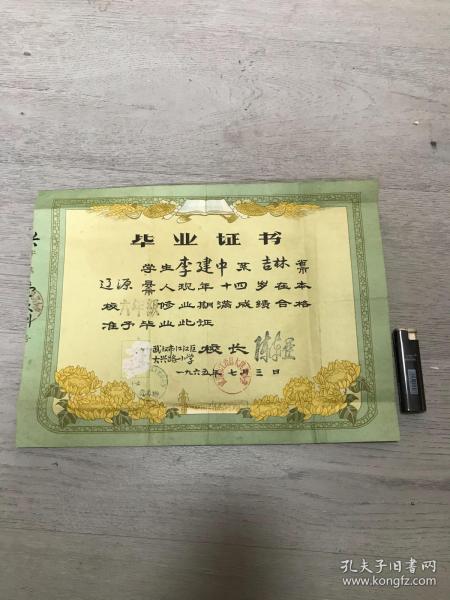 毕业证书
学生李建中系吉林省
辽源县人现年十四岁在本
校六年级修业期满成绩合格
准予毕业此证
武汉市江汉区
大兴路小学
校长
一九六五年七月三日
孔夫子旧书网
www.kongfz.com